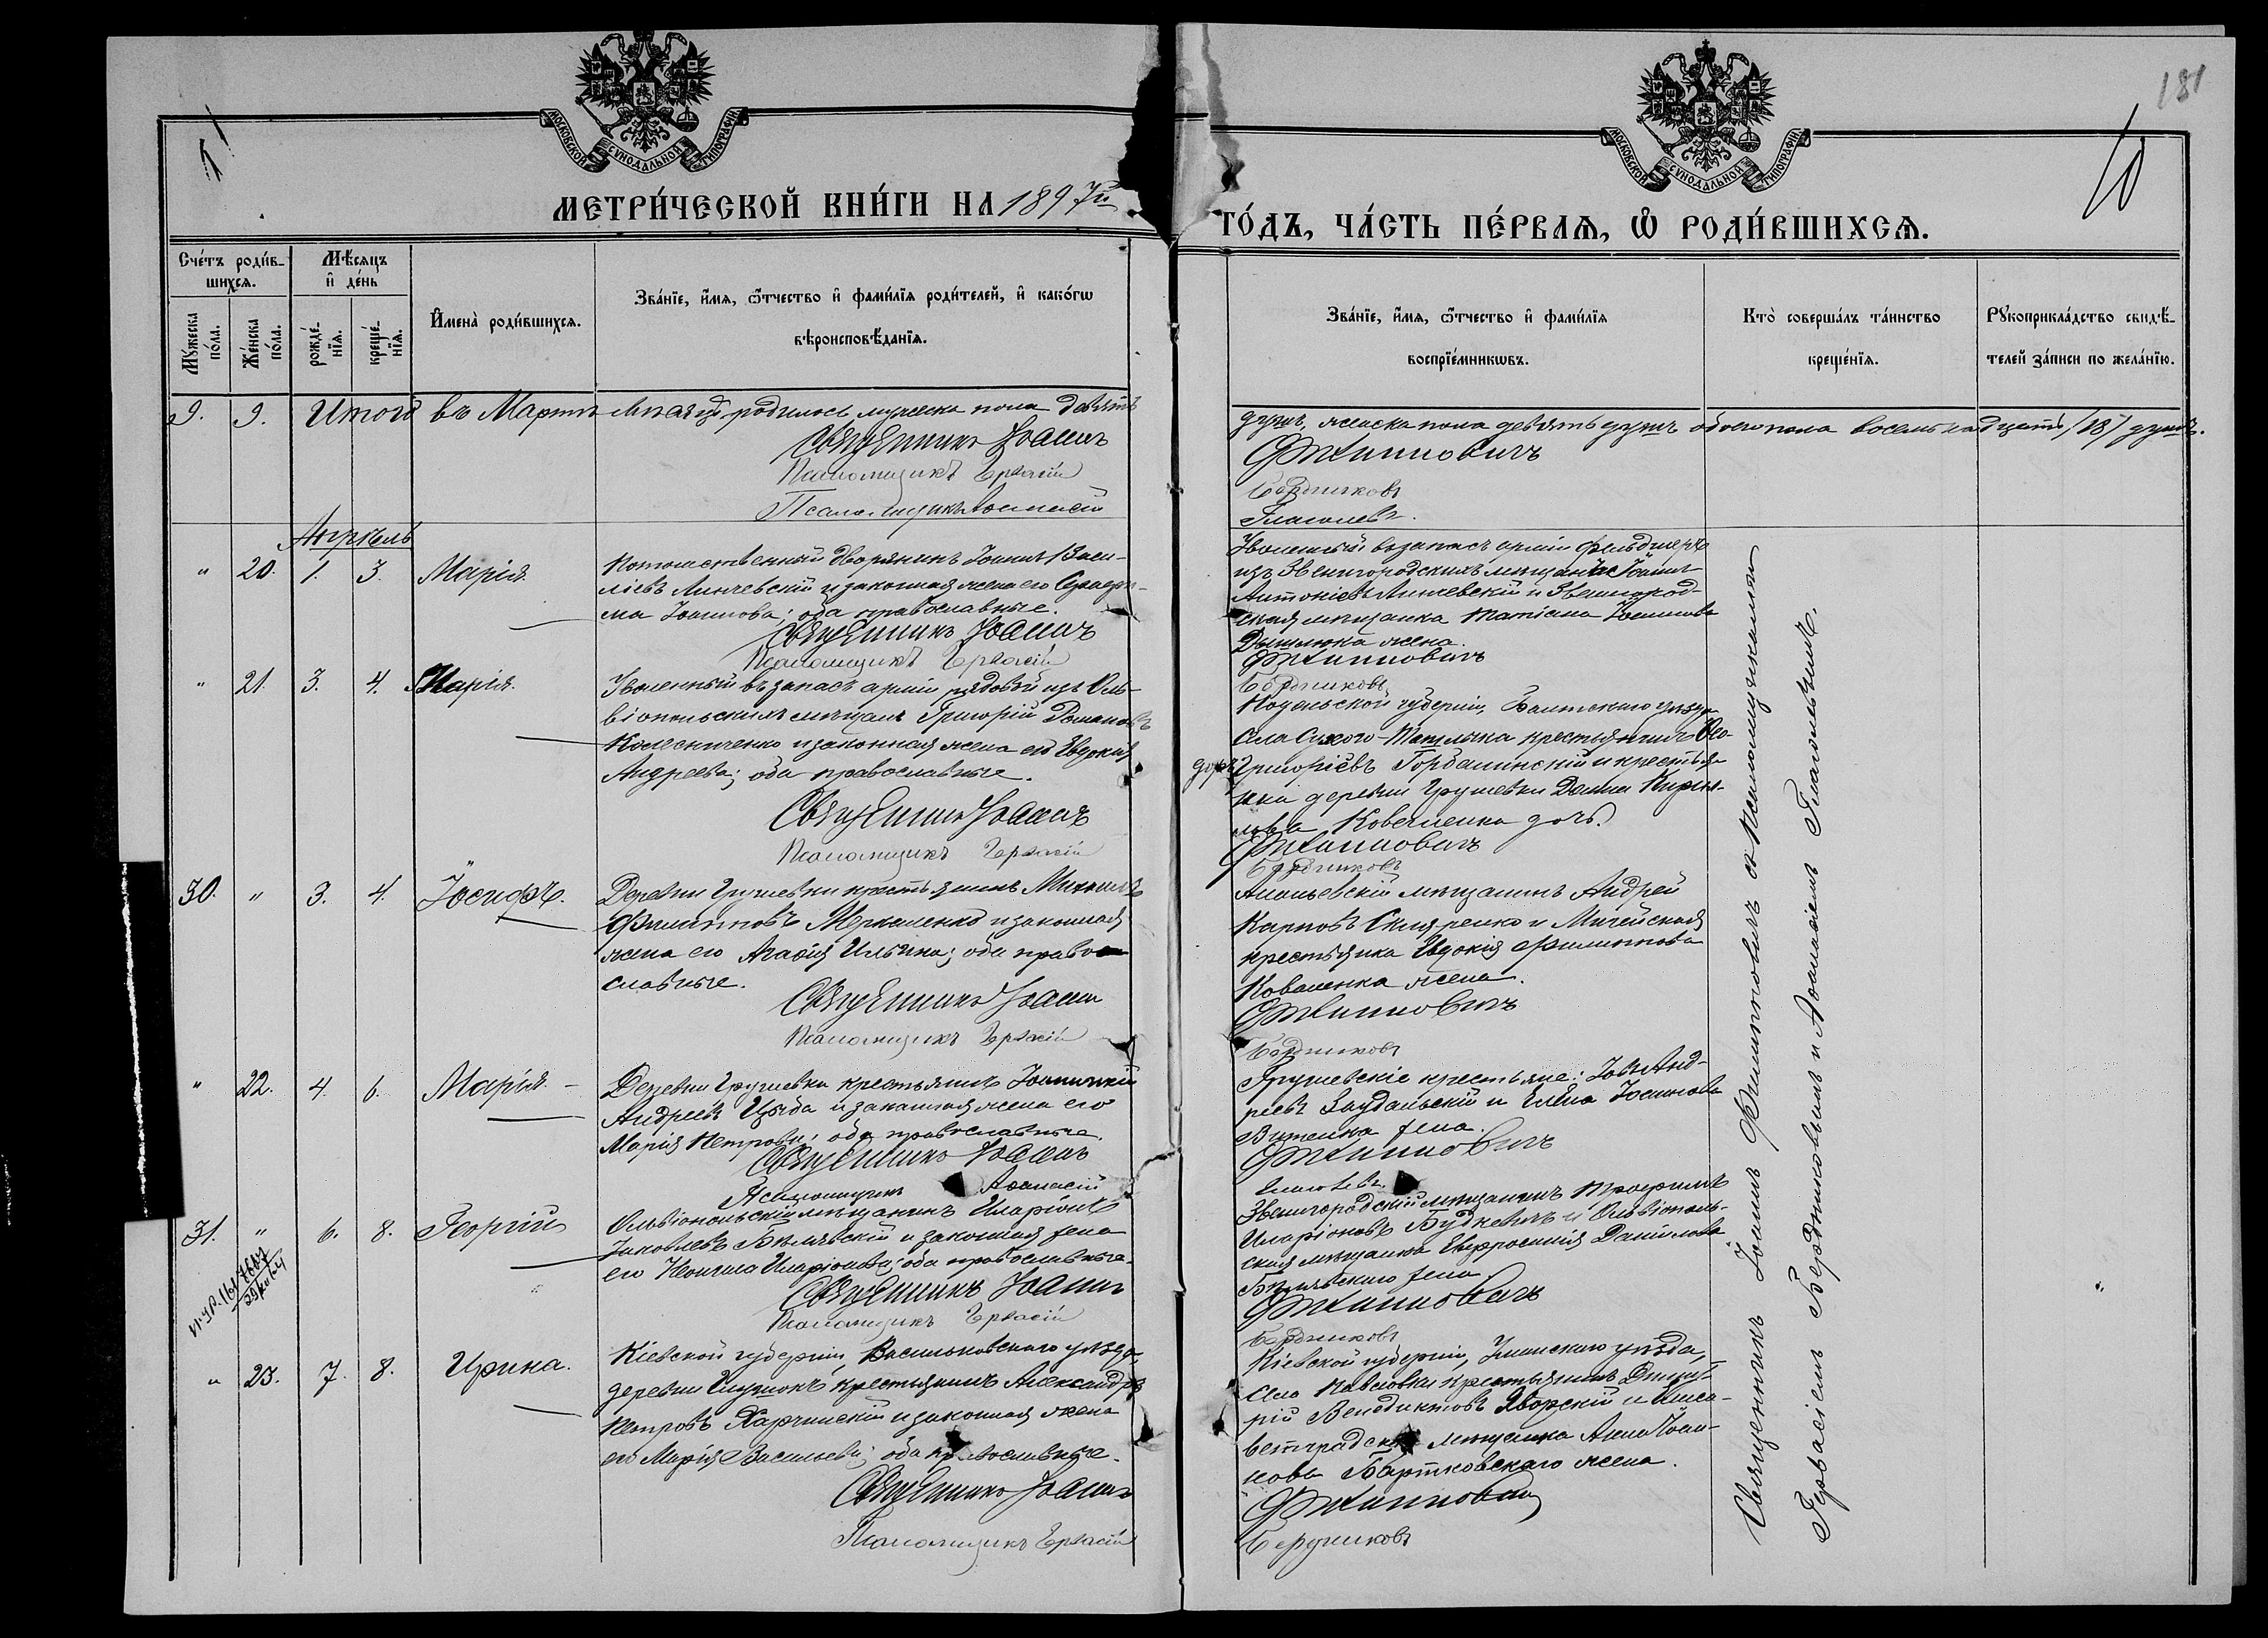 181
10
МОСКОВСКОЙ СѴНОДАЛЬНОЙ ТИПОГРАФІИ
МОСКОВСКОЙ СѴНОДАЛЬНОЙ ТИПОГРАФІИ
МЕТРИ́ЧЕСКОЙ КНИ́ГИ НА 1897й
ГО́ДЪ, ЧА́СТЬ ПЕ́РВАѦ, Ѽ РОДИ́ВШИХСѦ.
Счетъ роди́в-
шихсѧ.
Мѣсѧцъ
и де́нь
Му́жеска
по́ла.
Же́нска
по́ла.
рожде́-
нїѧ.
креще́-
нїѧ.
И҆мена̀ роди́вшихсѧ.
Зва́нїе, и҆́мѧ, ѻ҆́тчество и҆ фамѝлїѧ роди́телей, и҆ како́гѡ
вѣроисповѣ́данїѧ.
Зва́нїе, и҆́мѧ, ѻ҆́тчество и҆ фами́лїѧ
воспрїе́мникѡвъ.
Кто̀ соверша́лъ та́инство
креще́нїѧ.
Рꙋкоприкла́дство свидѣ́-
телей за́писи по жела́нїю.
9. 9. Итого въ Мартѣ мѣсяцѣ родилось мужеска пола девять
душъ, женска пола девять душъ обоего пола восемнадцать /18/ душъ.
Священникъ Іоаннъ
Филипповичъ
Псаломщикъ Гервасій
Бердниковъ
Псаломщикъ Аѳанасій
Глаголевъ.
Апрѣль
" 20. 1. 3. Марія.
Потомственный дворянинъ Іоаннъ Васи-
ліевъ Линчевскій и законная жена его Серафи-
ма Іоаннова; оба православные.
Священникъ Іоаннъ
Псаломщикъ Гервасій
Уволенный въ запасъ арміи фельдшеръ
изъ Звенигородскихъ мѣщанъ Іоаннъ
Антоніевъ Линчевскій и Звенигород-
ская мѣщанка Татіана Іоаннова
жена.
Филипповичъ
Бердниковъ
" 21. 3. 4. Марія.
Уволенный въ запасъ арміи рядовой изъ Оль-
віопольскихъ мѣщанъ Григорій Романовъ
Колесниченко и законная жена его Евдокія
Андреева; оба православные.
Священникъ Іоаннъ
Псаломщикъ Гервасій
Подольской губерніи, Балтскаго уѣзда
села Сухого-Ташлыка крестьянинъ Ѳео-
доръ Григоріевъ Горбашинскій и крестья-
нка деревни Грушевки Домна Кирил-
лова Коваленка дочь.
Филипповичъ
Бердниковъ
30. " 3. 4. Іосифъ.
Деревни Грушевки крестьянинъ Михаилъ
Филипповъ Меркаленко и законная
жена его Агаѳія Ильина; оба право
славные.
Священникъ Іоаннъ
Псаломщикъ Гервасій
Ананьевскій мѣщанинъ Андрей
Карповъ Скляренко и Мигейская
крестьянка Евдокія Филиппова
Коваленка жена.
Филипповичъ
Бердниковъ
" 22. 4. 6. Марія.
Деревни Грушевки крестьянинъ Іоанникій
Андреевъ Цыба и законная жена его
Марія Петрова; оба православные.
Священникъ Іоаннъ
Псаломщикъ Аѳанасій
Грушевскіе крестьяне: Іовъ Анд-
реевъ Заудальскій и Елена Іосифова
жена.
Филипповичъ
Глаголевъ.
31. " 6. 8. Георгій
Ольвіопольскій мѣщанинъ Иларіонъ
Іаковлевъ Бѣлявскій и законная жена
его Неонила Иларіонова; оба православные.
Священникъ Іоаннъ
Псаломщикъ Гервасій
Звенигородскій мѣщанинъ Трофимъ
Иларіоновъ Будкевичъ и Ольвіополь-
ская мѣщанка Евфросинія Данилова
Бѣлявскаго жена
Филипповичъ
Бердниковъ
" 23. 7. 8. Ирина.
Кіевской губерніи, Васильковскаго уѣзда,
деревни крестьянинъ Александръ
Петровъ Харчинскій и законная жена
его Марія Васильева; оба православные.
Священникъ Іоаннъ
Псаломщикъ Гервасій
Кіевской губерніи, Уманскаго уѣзда,
села Павловки крестьянинъ Димит-
рій Венедиктовъ Яворскій и Елиса-
ветградская мѣщанка Анна Іоан-
нова Бартковскаго жена.
Филипповичъ
Бердниковъ
Священникъ Іоаннъ Филипповичъ съ псаломщиками
Гервасіемъ Бердниковымъ и Аѳанасіемъ Глаголевымъ.